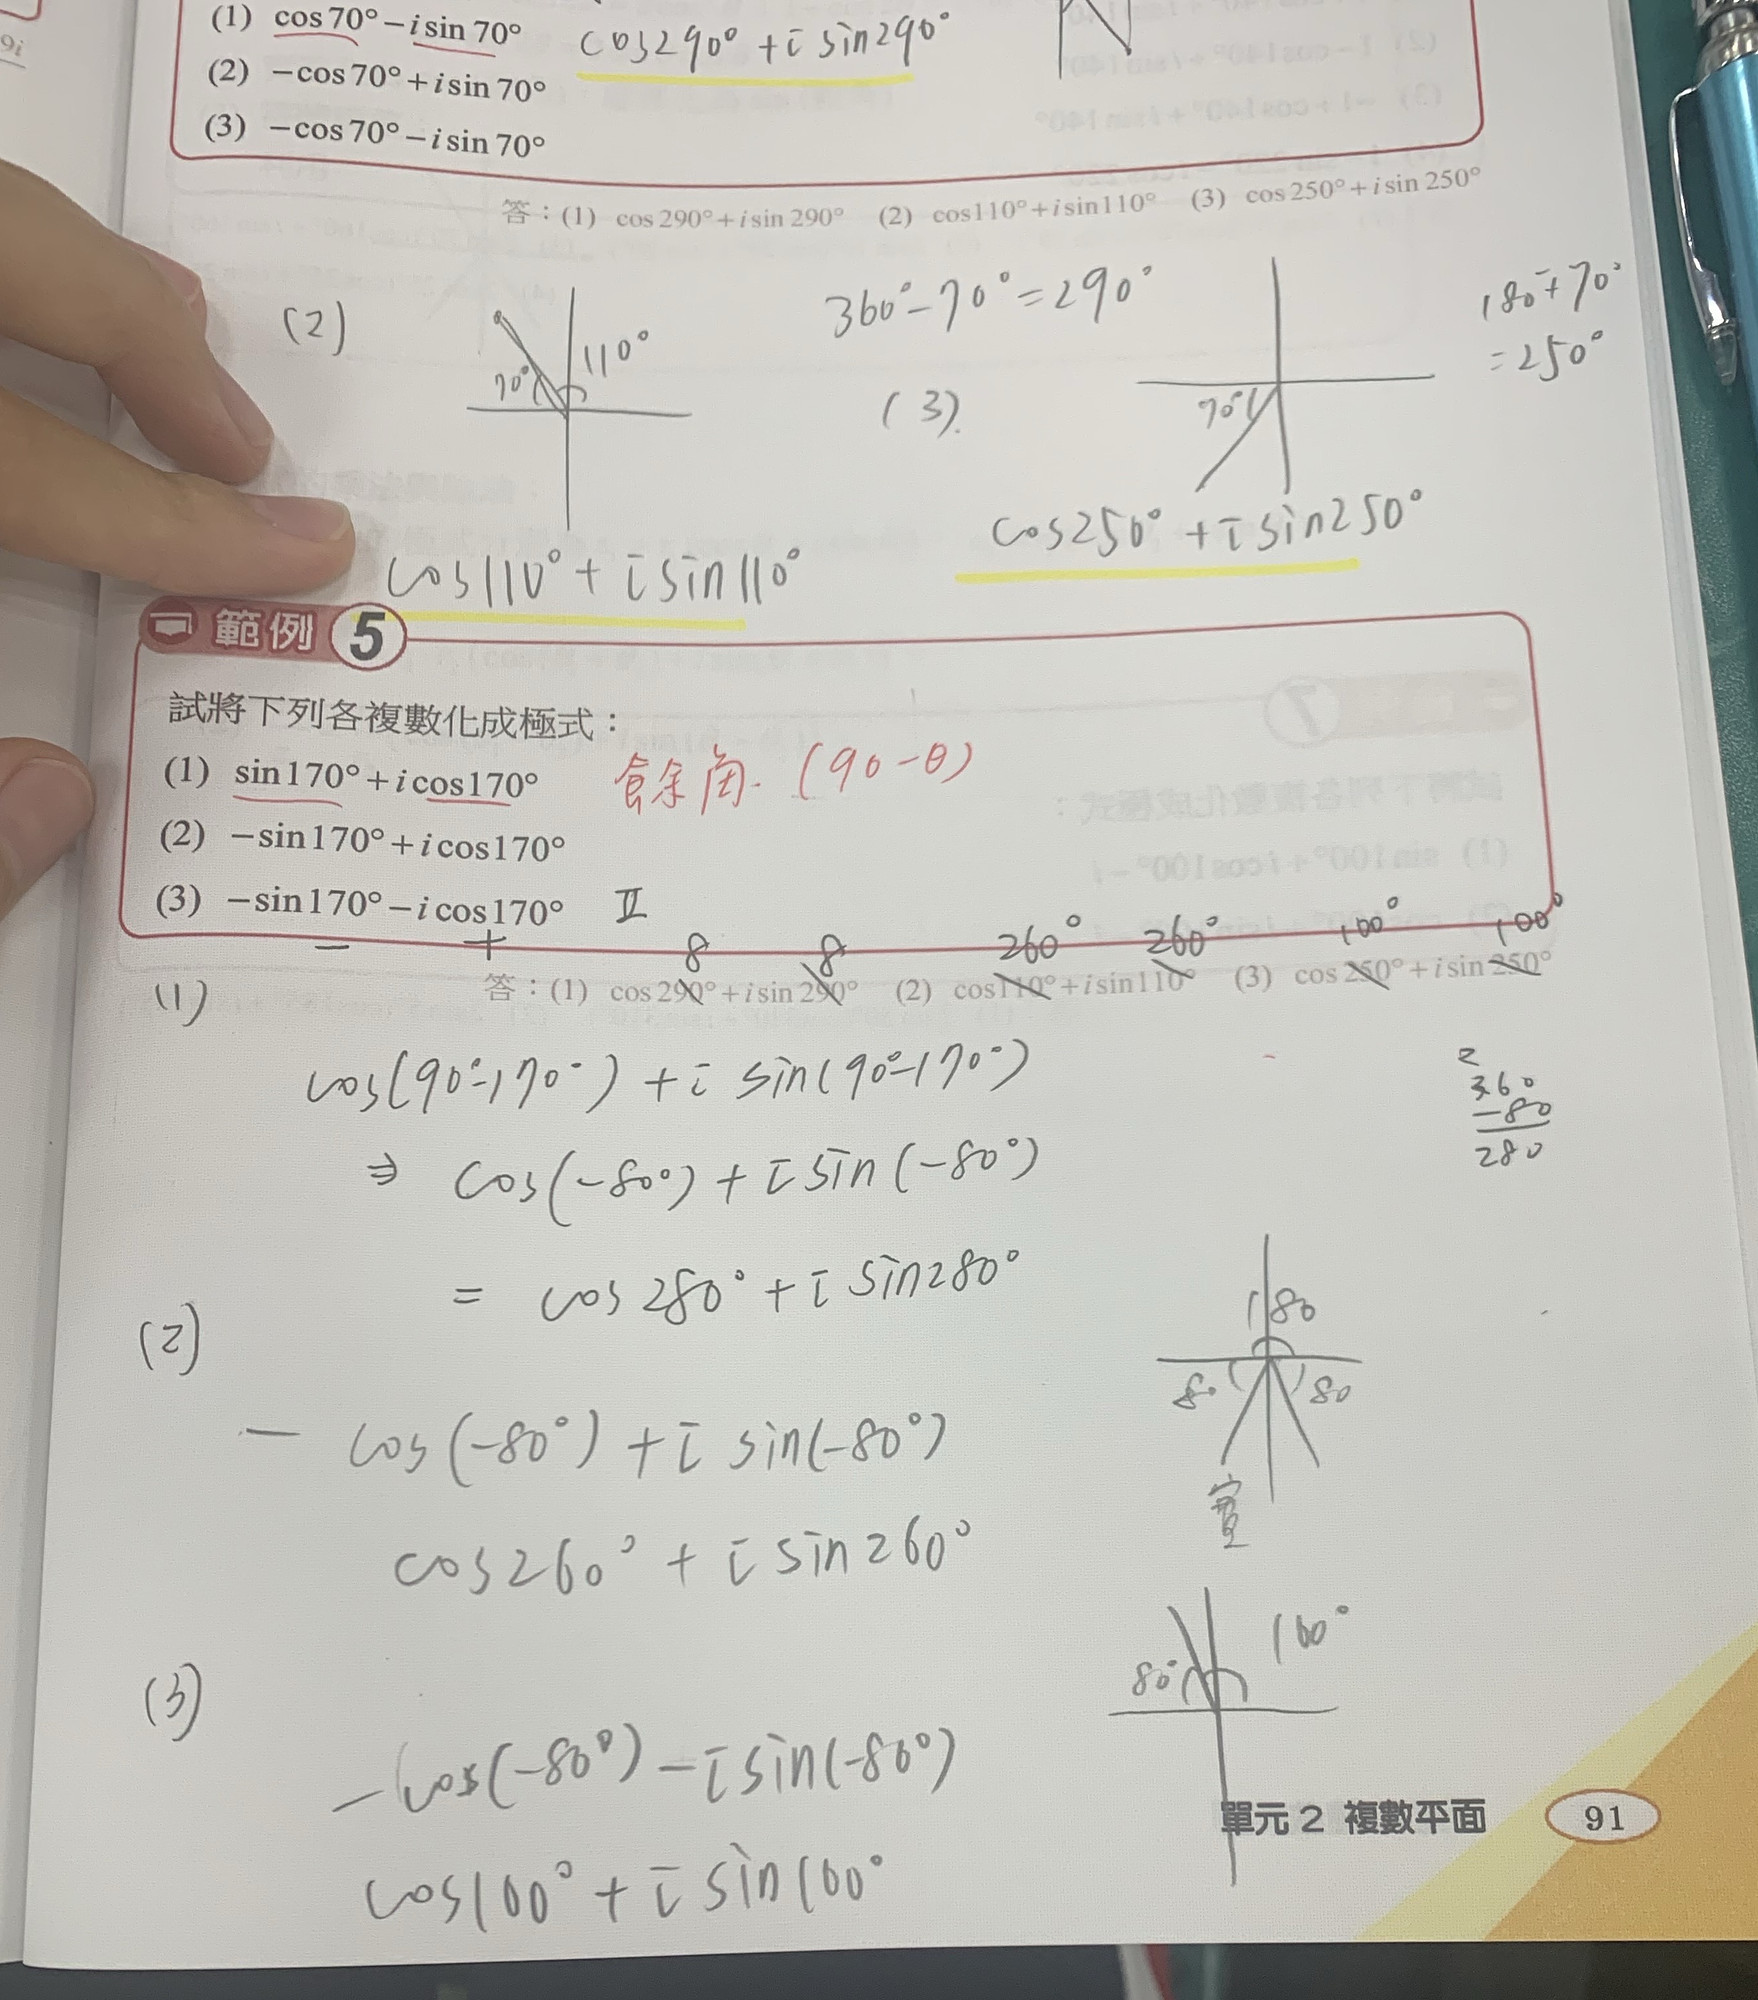 9i
(1) cos 70° − i sin 70°
cos290° + i sin290°
(2) −cos 70° + i sin 70°
(3) −cos 70° − i sin 70°
答：(1) cos 290° + i sin 290° (2) cos110° + i sin110° (3) cos 250° + i sin 250°
(2)
70°
110°
360° − 70° = 290°
(3).
70°
180° + 70°
= 250°
cos110° + i sin110°
cos250° + i sin250°
範例 5
試將下列各複數化成極式：
(1) sin170° + i cos170°
餘角. (90−θ)
(2) −sin170° + i cos170°
(3) −sin170° − i cos170° II
− +
8 8 260° 260° 100° 100°
答：(1) cos 290° + i sin 290° (2) cos110° + i sin110° (3) cos 250° + i sin 250°
(1)
cos(90°−170°) + i sin(90°−170°)
⇒ cos(−80°) + i sin(−80°)
= cos 280° + i sin280°
2
360
−80
280
(2)
180
80
80
− cos(−80°) + i sin(−80°)
cos260° + i sin260°
(3)
80°
100°
−cos(−80°) − i sin(−80°)
cos100° + i sin100°
單元 2 複數平面 91